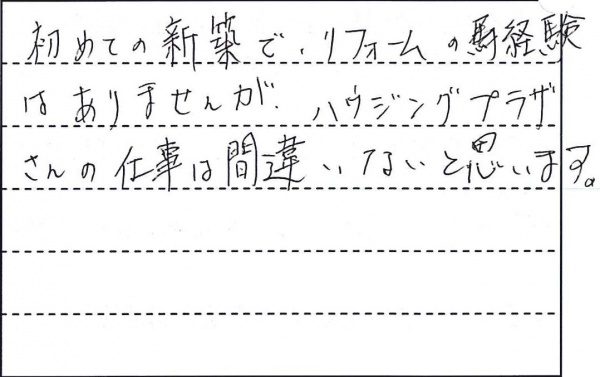 初めての新築で、リフォームの馬経験
はありませんが、ハウジングプラザ
さんの仕事は間違いないと思います。